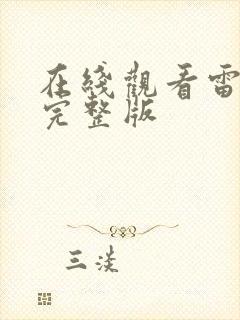 在綫觀看雷
完整版
三淡